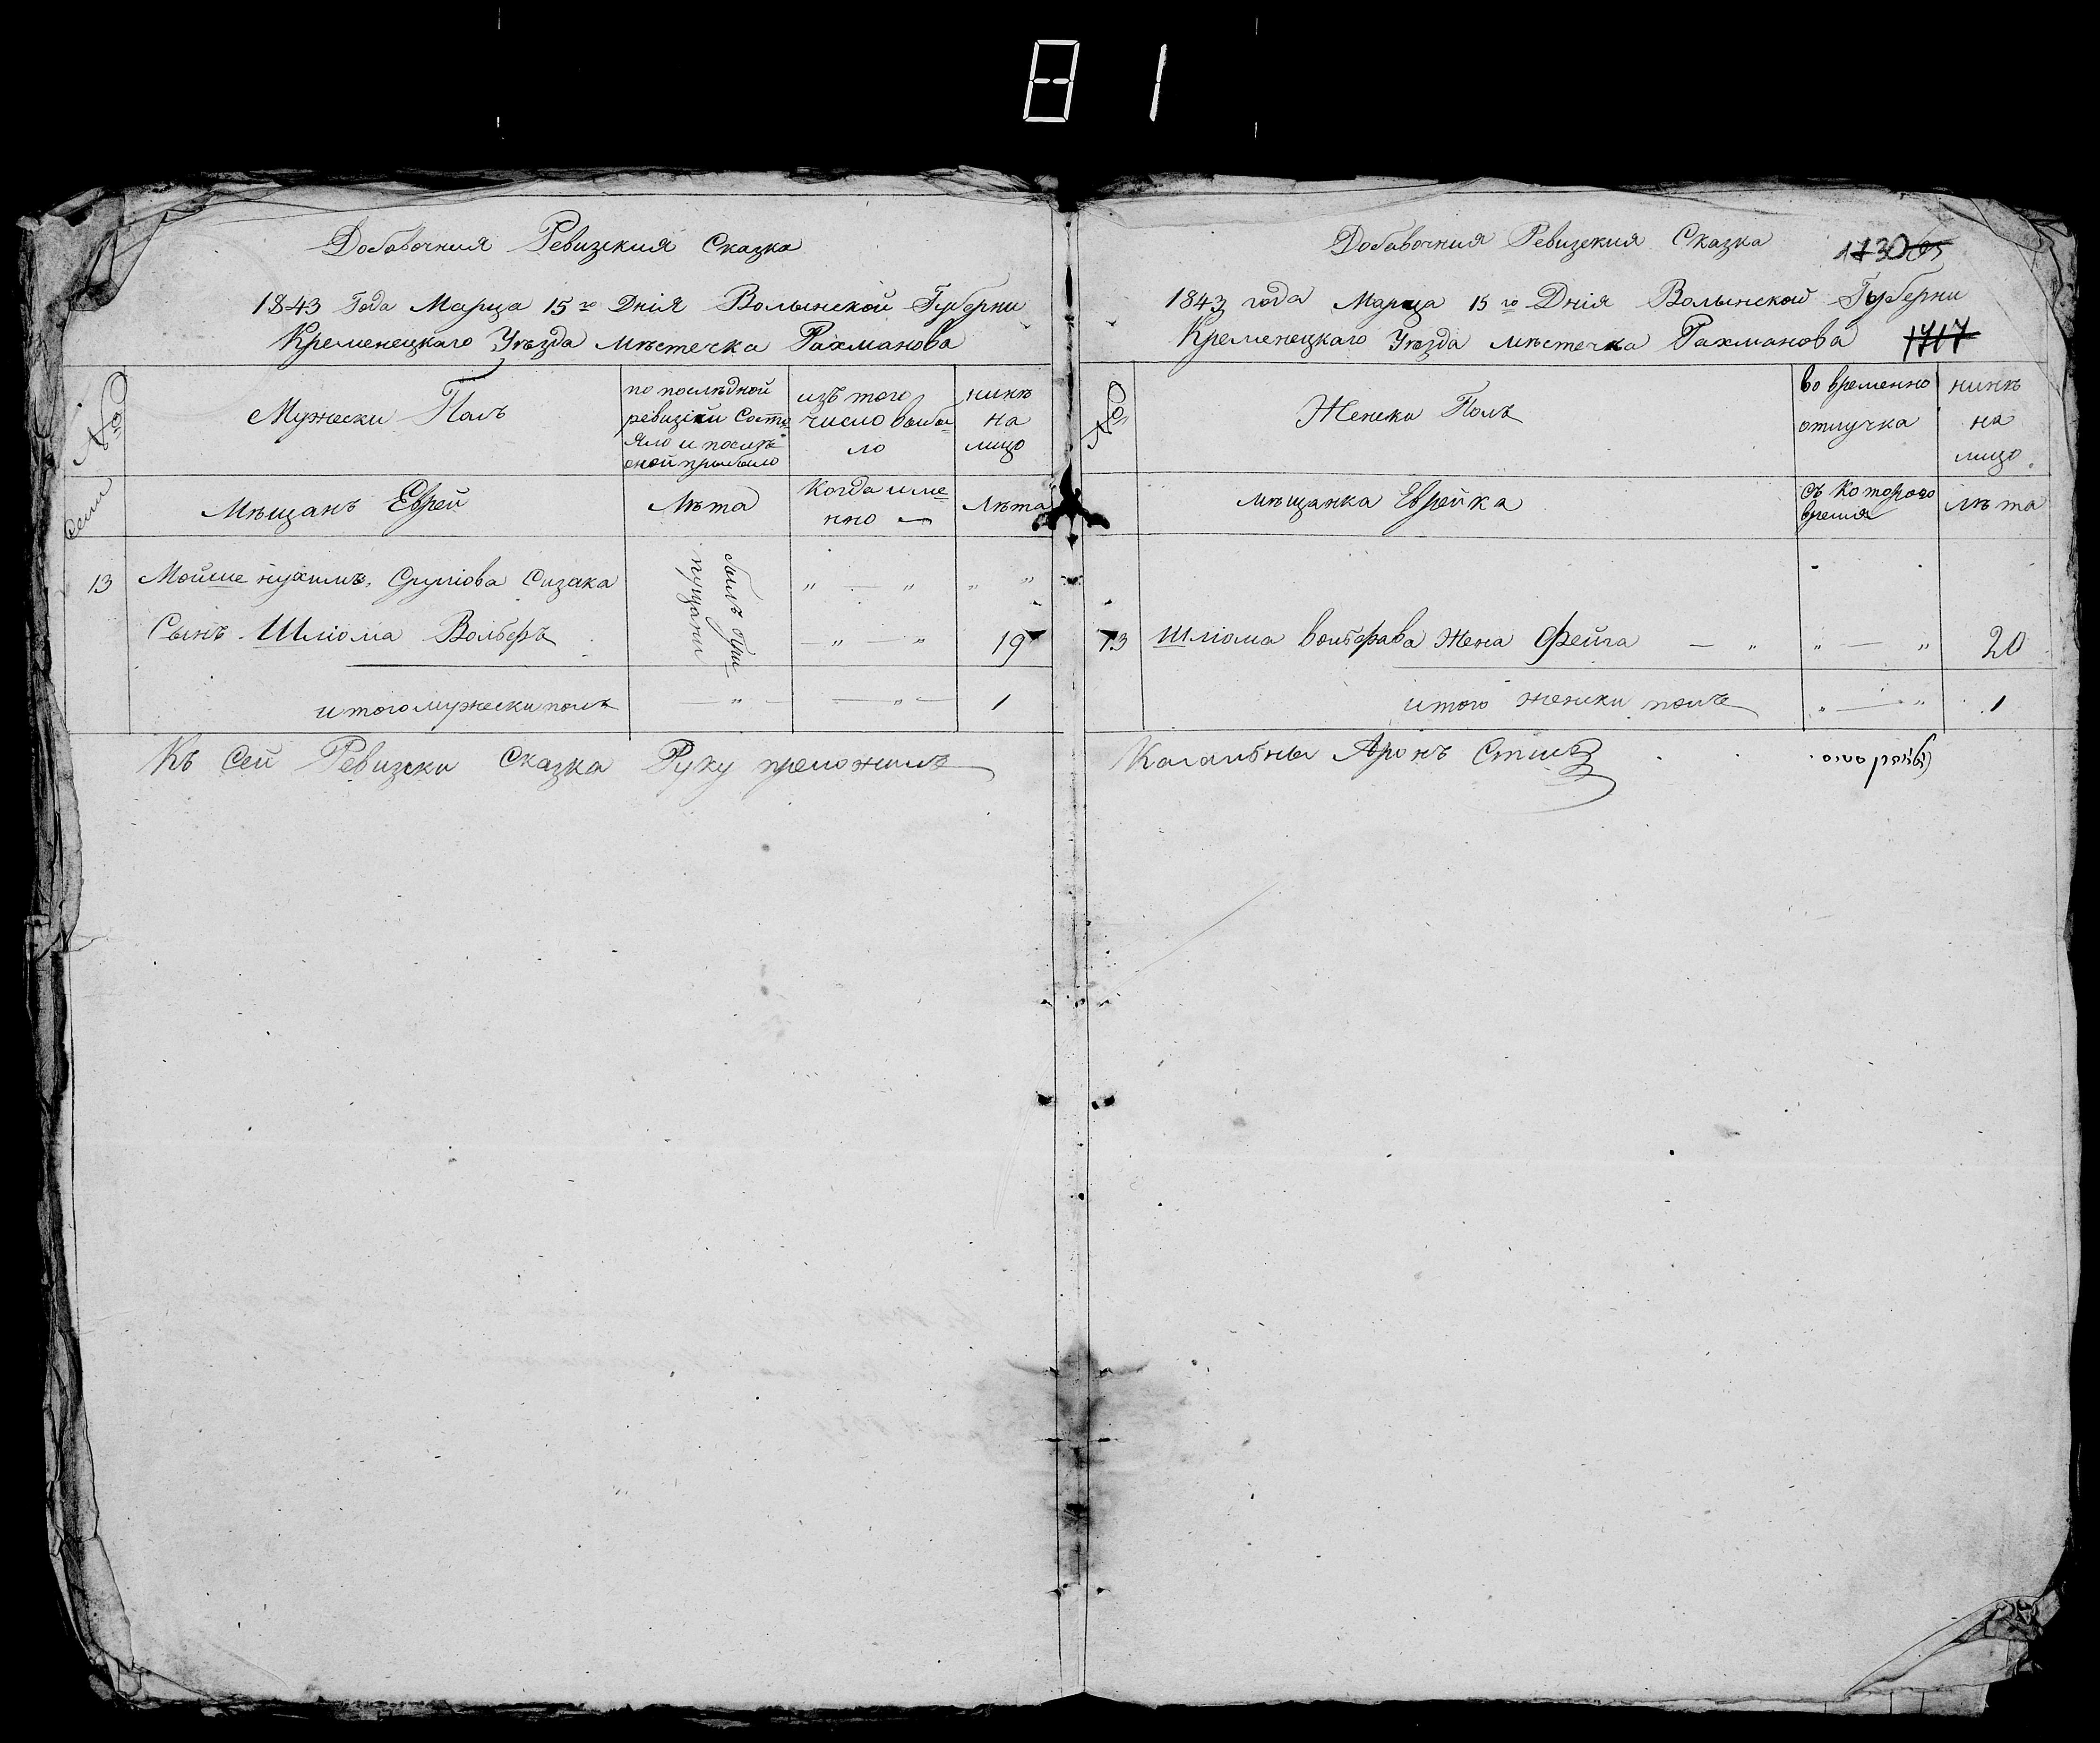 81
Добавочния Ревизския Сказка
1843 Года Марца 15го Днія Волынской Губерни
Кременецкаго Уѣзда мѣстечка Рахманова
№
семи
Мужески Полъ
по послѣдной
ревизіи Состо
яло и послѣ
оной прибыло
изъ того
число выбы
ло
нинѣ
на
лицо
Мѣщанъ Еврей
Лѣта
Когда име
нно —
Лѣта
13 Мойше нухимъ
былъ при
пущани
Сынъ Шліома Вольфъ 19
итого мужески полъ 1
Къ Сей Ревизски Сказка Руку преложилъ
Добавочния Ревизския Сказка
1730
1843 года Марца 15го Днія Волынской Губерни
Кременецкаго Уѣзда мѣстечка Рахманова
1717
№
Женски Полъ
во временно
отлучка
нинѣ
на
лицо
мѣщанка Еврейка
съ Которого
время
лѣта
13 Шліома вольфава Жена Фейга 20
итого женски полъ 1
Кагальны Аронъ